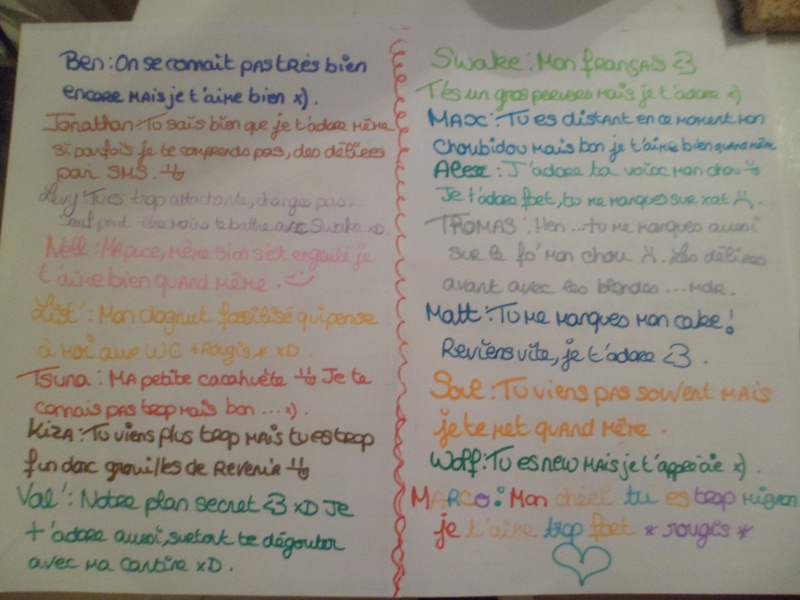 Ben : On se connait pas très bien
encore mais je t'aime bien x).
Jonathan : Tu sais bien que je t'adore même
si parfois je te comprends pas, des délires
par SMS.
Levy : T'es trop attachante, changes pas.
Sauf peut-être moins te battre avec Swake xD.
Nell : Ma puce, même si on s'est engeulé je
t'aime bien quand même.
List' : Mon dognut fossilisé qui pense
à moi aux WC *Rougis* xD.
Tsuna : Ma petite cacahuète Je te
connais pas trop mais bon ... x).
Kiza : Tu viens plus trop mais tu es trop
fun donc grouilles de revenir
Val' : Notre plan secret <3 xD Je
t'adore aussi, surtout te dégouter
avec ma cantine xD.
Swake : Mon français <3
T'es un gros pervers mais je t'adore x)
Max' : Tu es distant en ce moment mon
Choubidou mais bon je t'aime bien quand même
Alex : J'adore ta voix mon chou
Je t'adore fort, tu me manques sur xat
THOMAS : Hen ... tu me manques aussi
sur le fo' mon chou. Les délires
avant avec les blondes ... mdr.
Matt : Tu me manques mon cake !
Reviens vite, je t'adore <3.
Soul : Tu viens pas souvent mais
je te met quand même.
Wolf : Tu es new mais je t'apprécie x).
MARCO : Mon chéri tu es trop mignon
je t'aime trop fort *rougis*